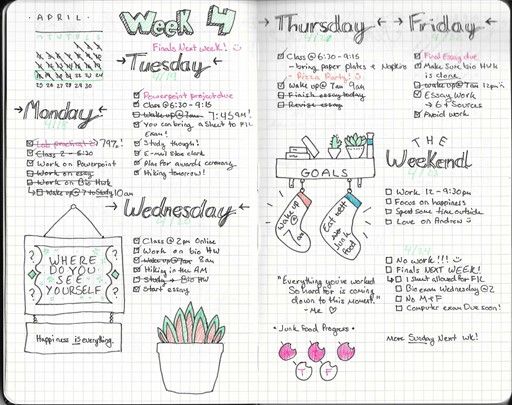 APRIL
Week 4
Finals Next week!
Monday
4/18
Lab practical 2 → 79%!
Class 2 - 6:30
Work on Powerpoint
Work on essay
Work on Bio HWK
Wake up @ 7 to study 10am
WHERE
DO YOU
SEE
YOURSELF
Happiness is everything.
Tuesday
4/19
Powerpoint project due
Class @ 6:30 - 9:15
Wake up @ 7am 7:45am!
You can bring a sheet to FIL
Exam!
Study though!
E-mail Sloe clark
Plan for awards ceremony
Hiking tomorrow!
Wednesday
4/20
Class @ 2pm Online
Work on bio HW
Wake up @ 7am 8am
Hiking in the AM
Study & Bio HW
Start essay
Thursday
Class @ 6:30 - 9:15
- bring paper plates + Napkins
- Pizza Party!
Wake up @ 7am 9am
Finish essay today
Revise essay
GOALS
Wake up
@
7
am
Eat well
No
Junk
food
"Everything you've worked
so hard for is coming
down to this moment."
- Me
Junk Food Progress
T F
Friday
Final Essay due
Make Sure bio HWK
is done
Wake up @ 7am 12pm
Essay Work
→ 6+ Sources
Avoid work
THE
Weekend
Work 12 - 9:30pm
Focus on happiness
Spend some time outside
Love on Andrew
4/24
No work!!!
Finals NEXT WEEK!
1 sheet allowed for FIL
Bio exam Wednesday @ 2
No M+F
Computer exam Due soon!
More Sunday Next wk!